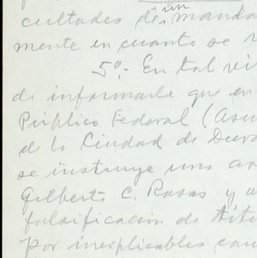 un
cultades de manda
mente en cuanto se r
5o.- En tal vir
de informarle que en
Público Federal (Asun
de la Ciudad de Dura
se instruye una av
Gilberto C. Rosas y
falsificación de títu
por inexplicables cau